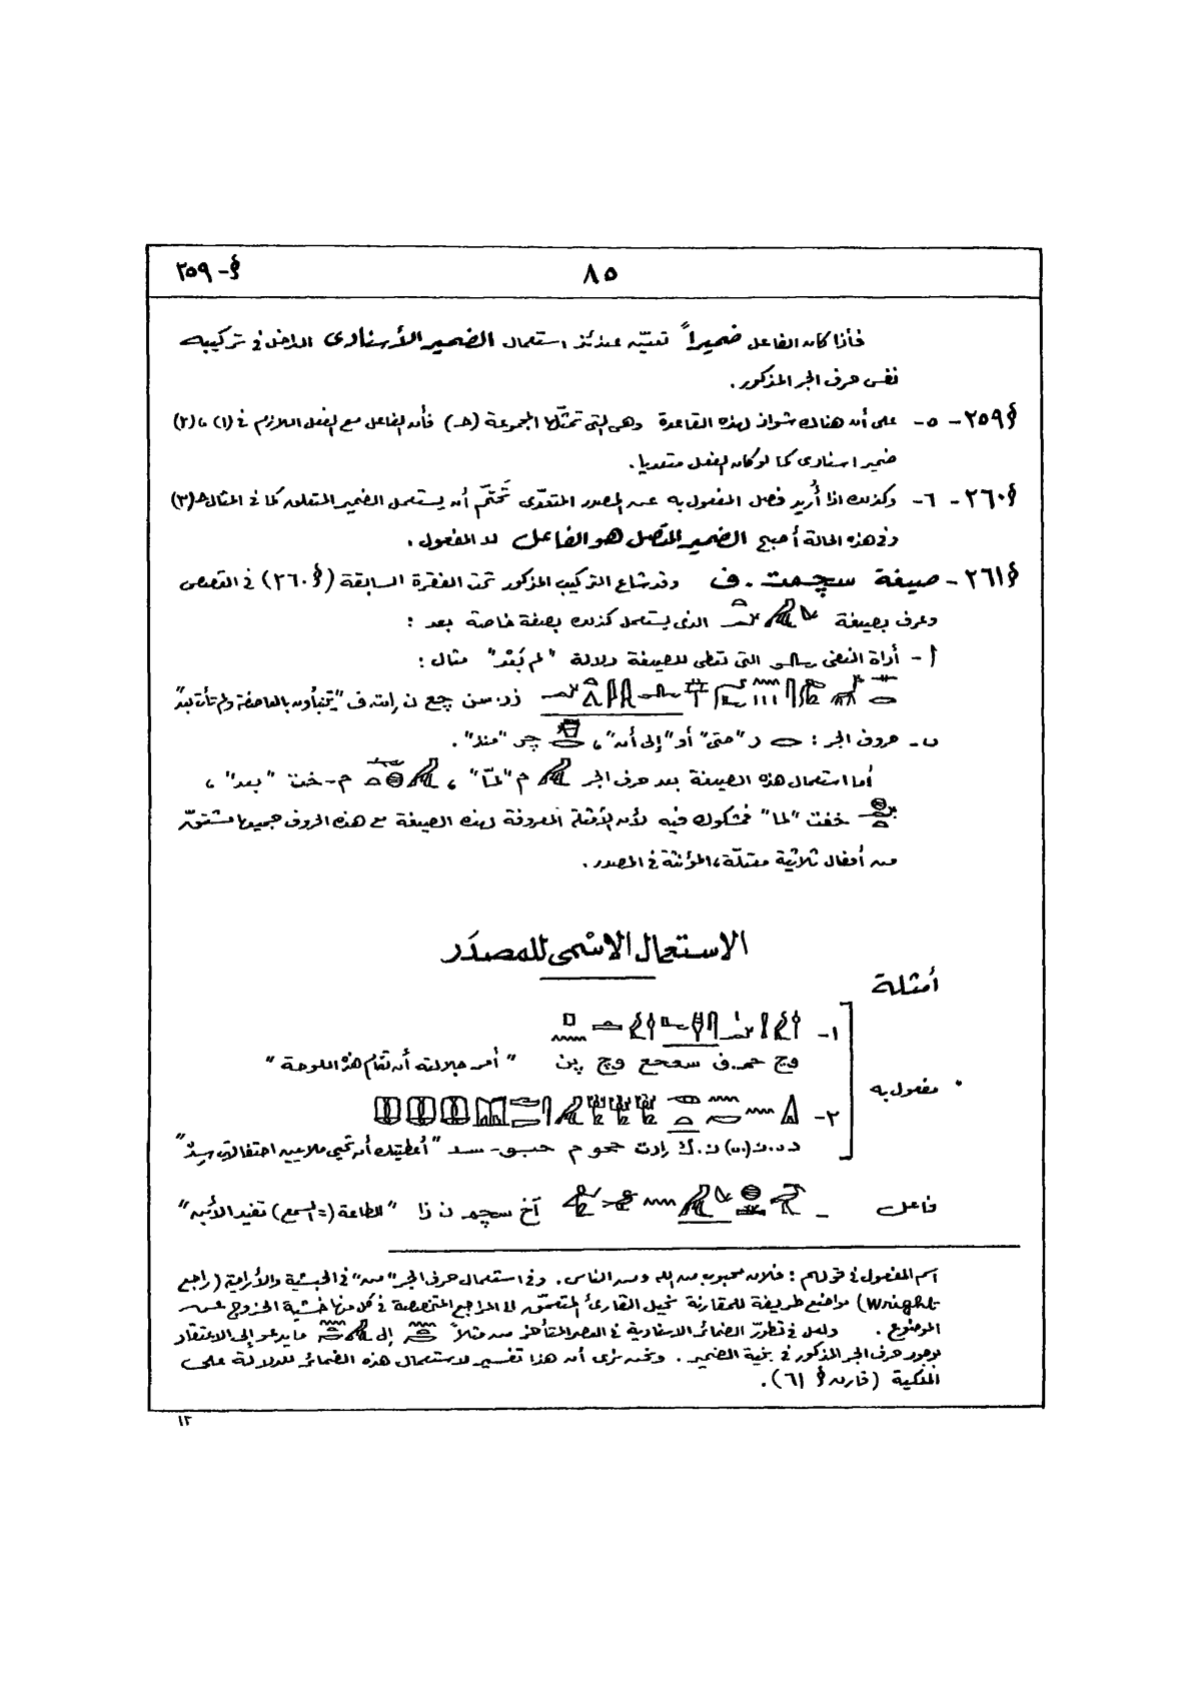 § - ٢٥٩
٨٥
فأذا كان الفاعل ضميراً تعيّن عندئذ استعمال الضمير الأسنادى الداخل فى تركيبه
نفس حرف الجر المذكور .
§ ٢٥٩ - ٥ - على أن هناك شواذ لهذه القاعدة وهى التى تمثّلها المجموعة (حـ) فأن الفاعل مع الفعل اللازم فى (١) ، (٢)
ضمير اسنادى كما لو كان الفعل متعديا .
§ ٢٦٠ - ٦ - وكذلك اذا أُريد فصل المفعول به عن المصدر المتعدّى تَحتّم أن يستعمل الضمير المتعلق كما فى المثال حـ (٣)
وفى هذه الحالة أصبح الضمير المتّصل هو الفاعل لا المفعول .
§ ٢٦١ - صيغة سچمت . ف وقد شاع التركيب المذكور تحت الفقرة السابقة (§ ٢٦٠) فى القصص
وعرف بصيغة الذى يستعمل كذلك بصفة خاصة بعد :
أ - أداة النفى التى تعطى للصيغة دلالة " لم بَعْد " مثال :
ف " يتنبأون بالعاصفة ولم تأت بعدُ "
ب - حروف الجر : ر " حتى " أو " إلى أن " ، چر " منذ " .
أما استعمال هذه الصيغة بعد حرف الجر م " لمّا " ، م - خت " بعد " ،
خفت " لما " فمشكوك فيه لأن الأمثلة المعروفة لهذه الصيغة مع هذه الحروف جميعها مشتقة
من أفعال ثلاثية معتلة ، المؤنثة فى المصدر .
الاستعمال الاسْمى للمصدَر
أمثلة
مفعول به
١ -
وچ حم . ف سعحع وچ پن " أمر جلالته أن تقام هذه اللوحة "
٢ -
حبو - سد " أعطيتك أن تحيى ملايين احتفالات سِدْ "
فاعل - آخ سچم ن ذا " الطاعة (= السمع) تفيد الأبن "
اسم المفعول فى قولهم : فلان محبوب من الله ومن الناس . وفى استعمال حرف الجر " من " فى الحبشية والأرامية (راجع
Wright) مواضع طريفة للمقارنة نحيل القارئ المتعمّق الى المراجع المتخصصة فى كل منها خشية الخروج عن
الموضوع . ولعل فى تطوّر الضمائر الاسنادية فى العصر المتأخر من مثلاً إلى ما يدعو إلى الاعتقاد
بوجود حرف الجر المذكور فى بنية الضمير . ونحن نرى أن هذا تفسير لاستعمال هذه الضمائر للدلالة على
الملكية (قارن § ٦١) .
١٢